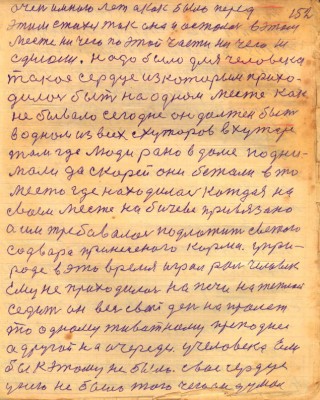 очен много лет а как было перед 152
этим стахи так она и осталос в этом
месте ни чего по этой части ни чего и
сделали. надо было для человека
такое сердце из которым прихо-
дилос быт на одном месте как
не бывало сегодне он должен быт
водном из всех схуторов в хуторе
там где люди рано в доме подни-
мали да скорей они бежали в то
место где находилас каждая на
своем месте на бичеве привязано
а им требовалос подложит свежого
со двора принесеного корма. упри-
роде в это время играл рол человек
ему не приходилос на печи на теплой
седет он вес свой ден на пролет
то одному живатному преподнес
а другой на очереди. учеловека Если
бы к этому не было. свое сердце
унего не было того чтобы думал